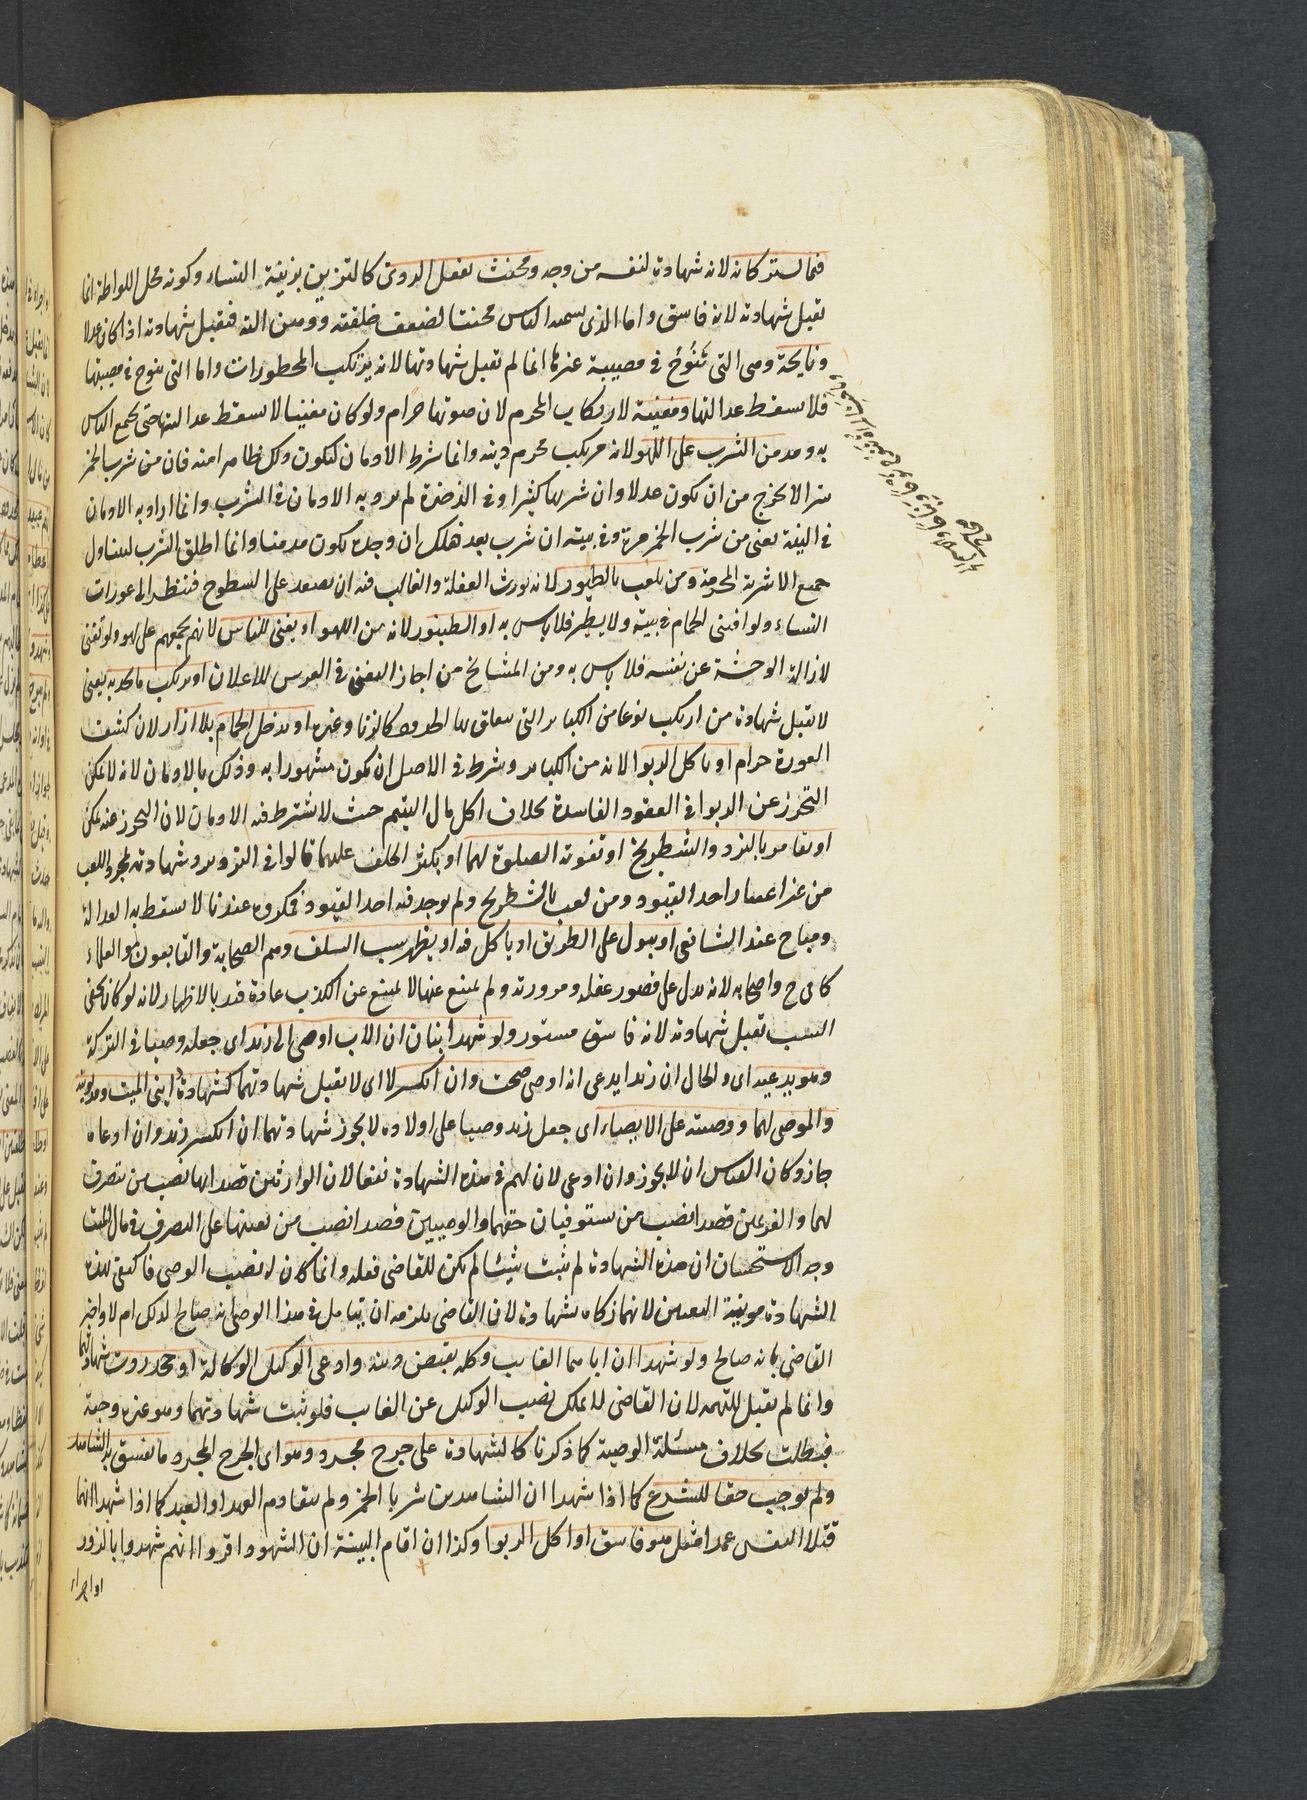 فيما يشتركانه لانه شهادة لنفسه من وجه ومخنث يفعل الردئ كالتزين بزينة النساء وكونه محل اللواطة انما
تقبل شهادته لانه فاسق واما الذى يسميه الناس مخنثا لضعف خلقته ولين الته فتقبل شهادته اذا كان عدلا
ونايحة وهى التى تَنُوحُ فى مصيبة غيرها انما لم تقبل شهادتها لانه يرتكب المحظورات واما التى تنوح فى مصيبتها
فلا تسقط عدالتها ومغنية لارتكاب المحرم لان صوتها حرام ولو كان مغنيا لا تسقط عدالته حتى يجمع الناس
به ومدمن الشرب على اللهو لانه مرتكب محرم دينه وانما شرط الادمان ليكون ذلك ظاهرا منه فان من شرب الخمر
سرا لا يخرج من ان يكون عدلا وان شربها كثيرا وفى الذخيرة لم يرد به الادمان فى الشرب وانما اراد به الادمان
فى النية يعنى من شرب الخمر مرة وفى بيته ان شرب بعد ذلك ان وجده يكون مدمنا وانما اطلق الشرب ليتناول
جميع الاشربة المحرمة ومن يلعب بالطيور لانه يورث الغفلة والغالب فيه ان يصعد على السطوح فينظر الى عورات
النساء ولو اقتنى الحمام فى بيته ولا يطير فلا باس به او الطنبور لانه من اللهو او يغنى للناس لانهم يجمعهم على لهو ولو تغنى
لازالة الوحشة عن نفسه فلا باس به ومن المشايخ من اجاز التغنى فى العرس للاعلان او يرتكب ما يحد به يعنى
لا تقبل شهادة من ارتكب نوعا من الكباير التى يتعلق بها الحدود كالزنا وغيره او يدخل الحمام بلا ازار لان كشف
العورة حرام او ياكل الربوا لانه من الكباير وشرط فى الاصل ان يكون مشهورا به وذلك بالادمان لانه لا يمكن
التحرز عن الربوا فى العقود الفاسدة بخلاف اكل مال اليتيم حيث لا يشترط فيه الادمان لان التحرز عنه يمكن
او يقامر بالنرد والشطرنج او تفوته الصلوة بهما او يكثر الحلف عليهما قالوا فى النرد يرد شهادته بمجرد اللعب
من غير اعتبار احد القيود ومن لعب بالشطرنج ولم يوجد فيه احد القيود فمكروه عندنا لا يسقط به العدالة
ومباح عند الشافعى او يبول على الطريق او ياكل فيه او يظهر سب السلف وهم الصحابة والتابعون والعلماء
كابى ح واصحابه لانه يدل على قصور عقله ومروته ولم يمتنع عنها لا يمتنع عن الكذب عادة قيد بالاظهار لانه لو كان يخفى
السب تقبل شهادته لانه فاسق مستور ولو شهد ابنان ان الاب اوصى الى زيد اى جعله وصيا فى التركة
وهو يدعيه اى والحال ان زيدا يدعى انه اوصى صحت وان انكر لا اى لا تقبل شهادتهما كشهادة ابنى الميت ومديونيه
والموصى لهما ووصيته على الايصاء اى جعل زيد وصيا على اولاده لا يجوز شهادتهما ان انكر زيد وان ادعاه
جاز وكان القياس ان لا يجوز وان ادعى لان لهم فى هذه الشهادة نفعا لان الوارثين قصدا بها نصب من يتصرف
لهما والغريمين قصدا نصب من يستوفيان حقهما والوصيين قصدا نصب من يعينهما على التصرف فى مال الميت
وجه الاستحسان ان هذه الشهادة لم تثبت شيئا لم يكن للقاضى فعله وانما كان له نصب الوصى فاكتفى بهذه
الشهادة مونة التعيين لانهما زكاه بشهادة لان القاضى يلزمه ان يتامل فى هذا الوصى انه صالح لذلك ام لا واخبر
القاضى بانه صالح ولو شهدا ان اباهما الغايب وكله بقبض دينه وادعى الوكيل الوكالة او جحد ردت شهادتهما
وانما لم تقبل للتهمة لان القاضى لا يملك نصب الوكيل عن الغايب فلو ثبت شهادتهما وهو غير وجبة
فبطلت بخلاف مسئلة الوصية كما ذكرنا كالشهادة على جرح مجرد وهو اى الجرح المجرد ما يفسق به الشاهد
ولم يوجب حقا للشرع كما اذا شهدا ان الشاهدين شربا الخمر ولم يتقادم العهد او العبد كما اذا شهدا انهما
قتلا النفس عمدا مثل هو فاسق او اكل الربوا وكذا ان اقام البينة ان الشهود اقروا انهم شهدوا بالزور
او اجراء